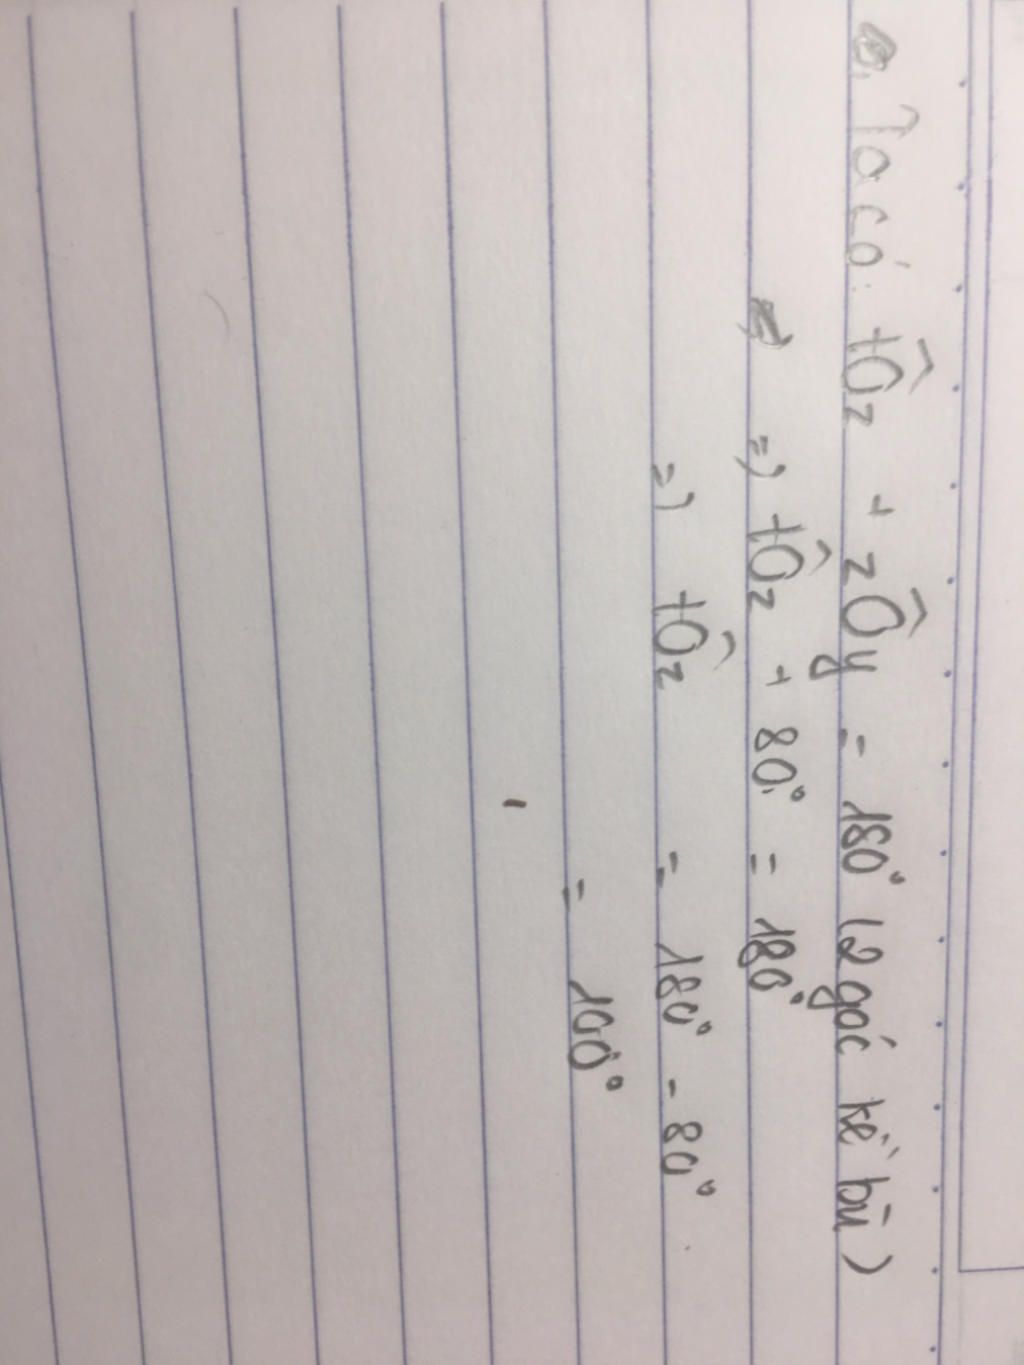 Ta có: tÔz + zÔy = 180° (2 góc kề bù)
=) tÔz + 80° = 180°
=) tÔz = 180° - 80°
= 100°